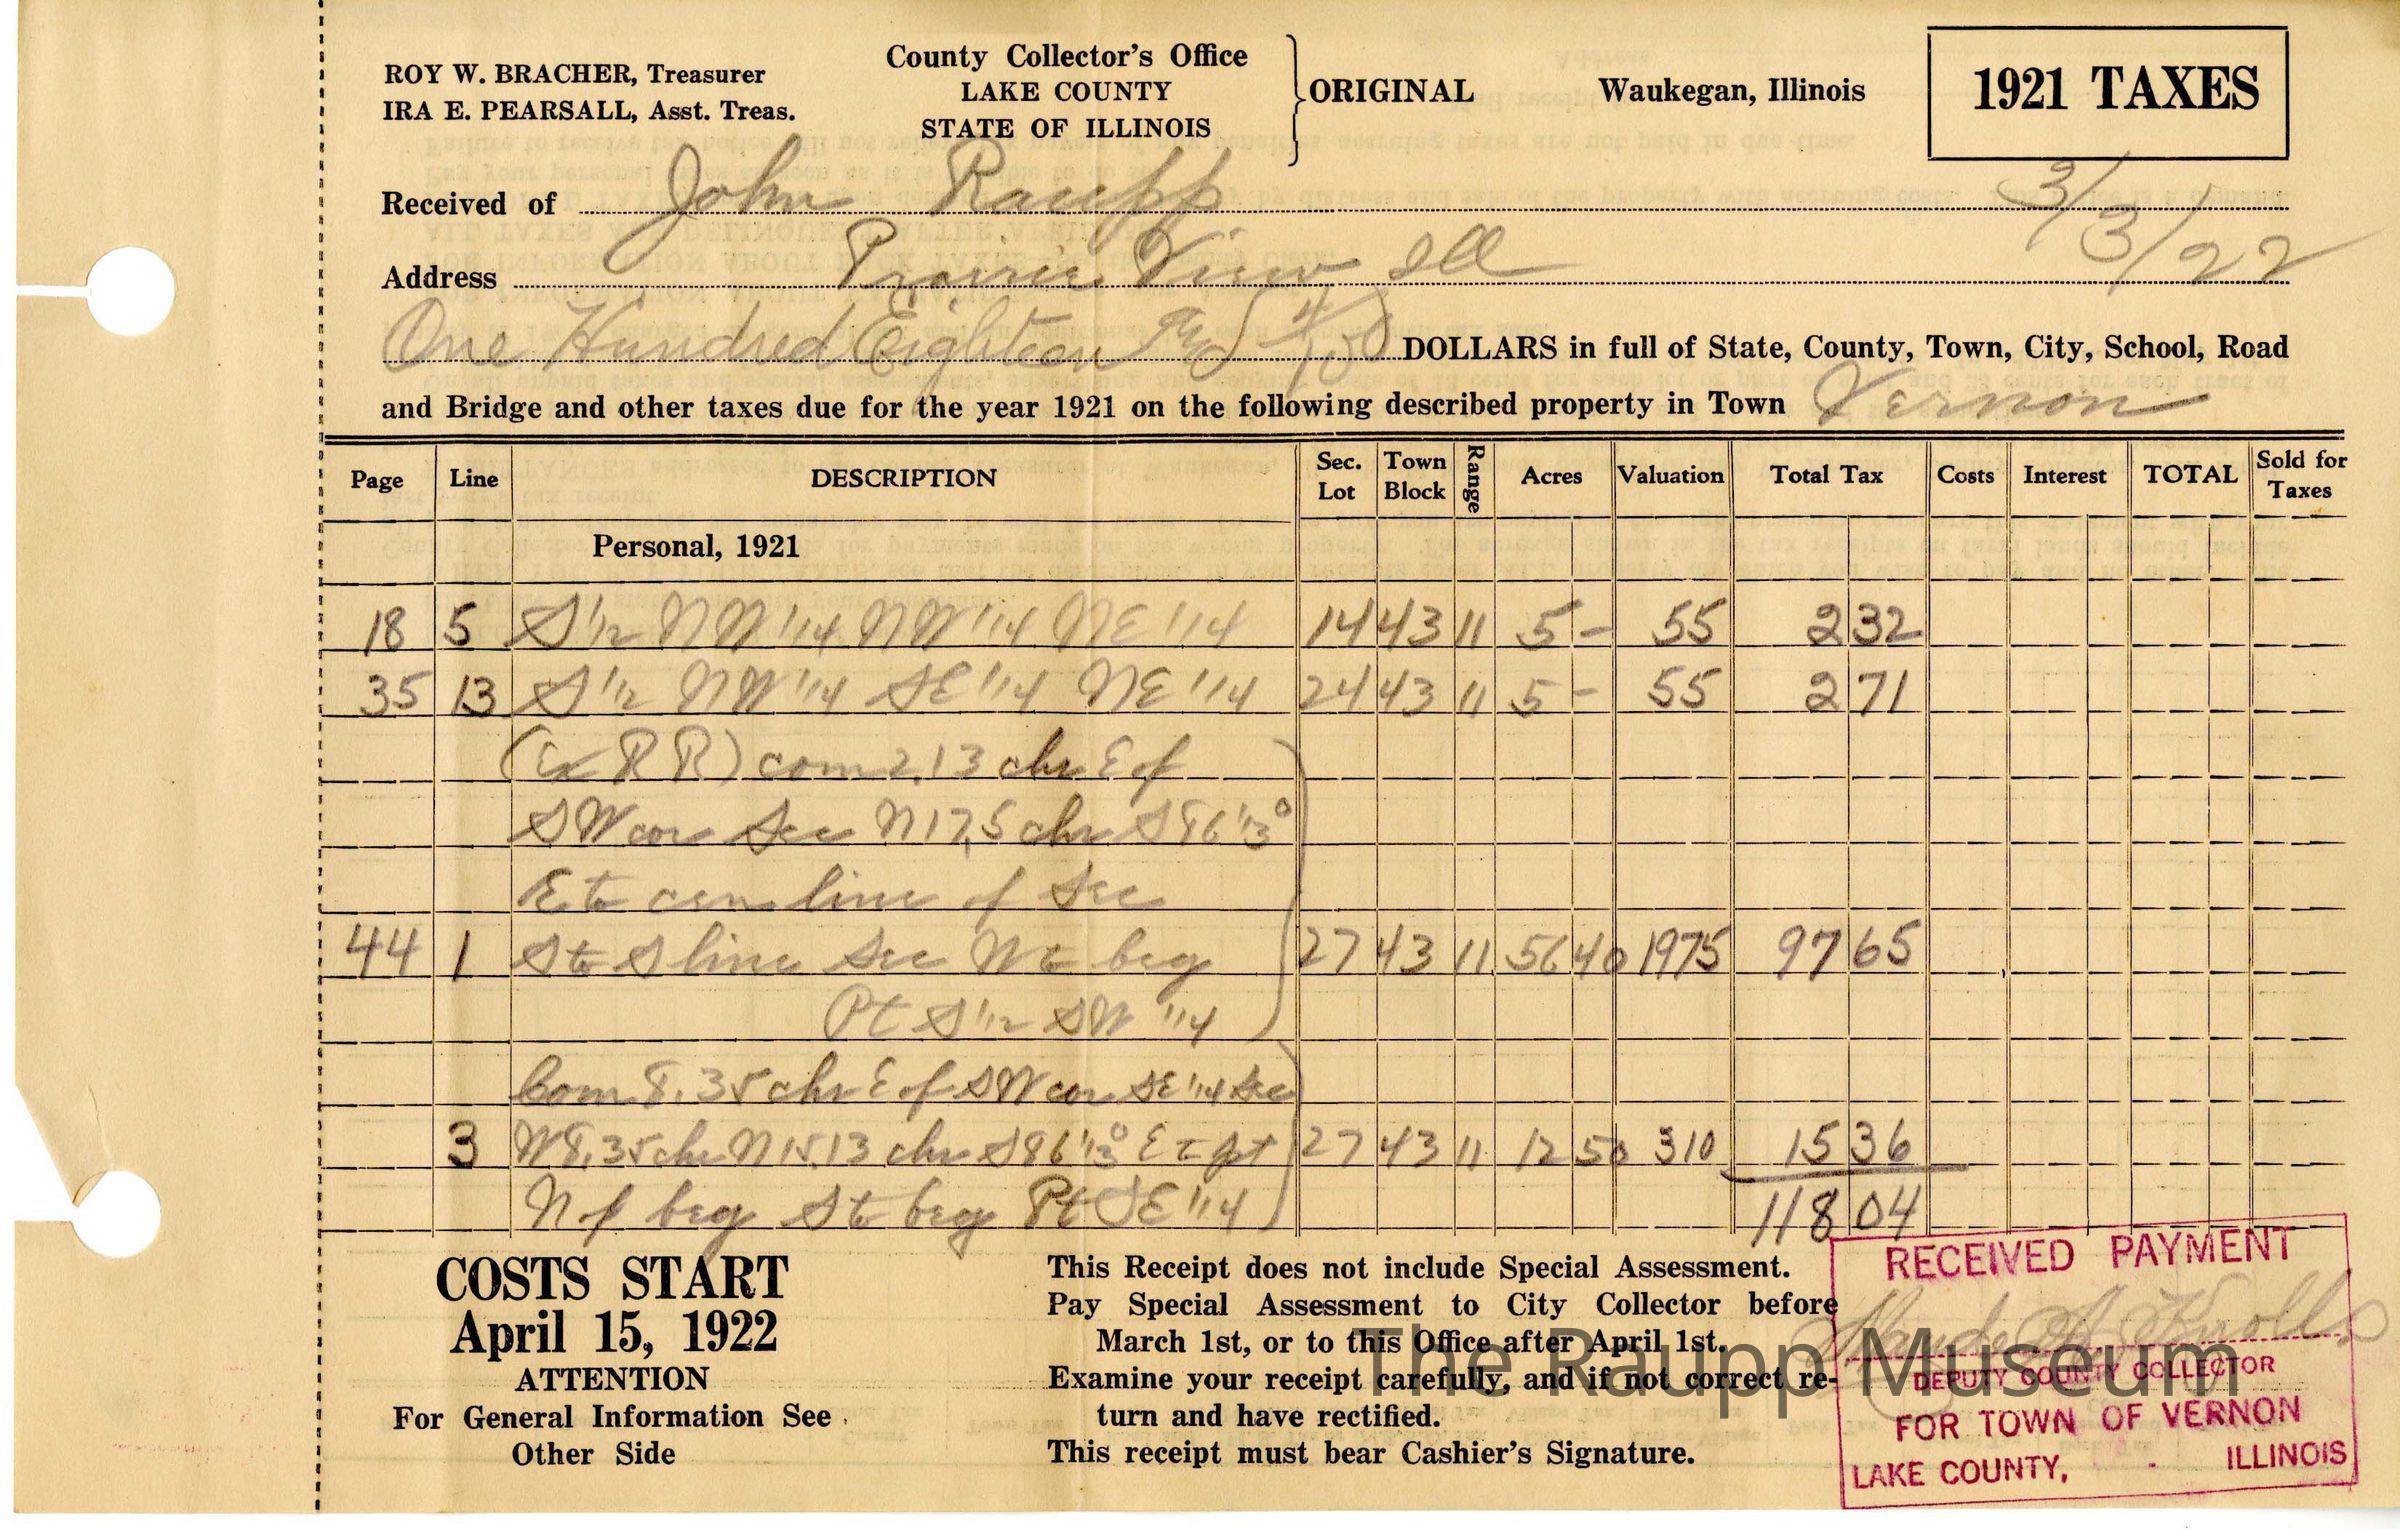 ROY W. BRACHER, Treasurer
IRA E. PEARSALL, Asst. Treas.
County Collector's Office
LAKE COUNTY
STATE OF ILLINOIS
ORIGINAL
Waukegan, Illinois
1921 TAXES
Received of John Raupp 3/3/22
Address Prairie View Ill
One Hundred Eighteen and 4/100 DOLLARS in full of State, County, Town, City, School, Road
and Bridge and other taxes due for the year 1921 on the following described property in Town Vernon
Page Line DESCRIPTION Sec. Lot Town Block Range Acres Valuation Total Tax Costs Interest TOTAL Sold for Taxes
Personal, 1921
18 5 S 1/2 NW 1/4 NW 1/4 NE 1/4 14 43 11 5 - 55 2 32
35 13 S 1/2 NW 1/4 SE 1/4 NE 1/4 24 43 11 5 - 55 2 71
(Ex R R) com 2.13 chs E of
SW cor Sec N 17.5 chs S 86 1/3°
E to cen line of Sec
44 1 S to S line Sec W to beg 27 43 11 56 40 1975 97 65
Pt S 1/2 SW 1/4
Com 8.35 chs E of SW cor SE 1/4 Sec
3 W 8.35 chs N 15.13 chs S 86 1/3° E to pt 27 43 11 12 50 310 15 36
N of beg S to beg Pt SE 1/4
118 04
COSTS START
April 15, 1922
ATTENTION
For General Information See
Other Side
This Receipt does not include Special Assessment.
Pay Special Assessment to City Collector before
March 1st, or to this Office after April 1st.
Examine your receipt carefully, and if not correct re-
turn and have rectified.
This receipt must bear Cashier's Signature.
RECEIVED PAYMENT
DEPUTY COUNTY COLLECTOR
FOR TOWN OF VERNON
LAKE COUNTY, ILLINOIS
The Raupp Museum